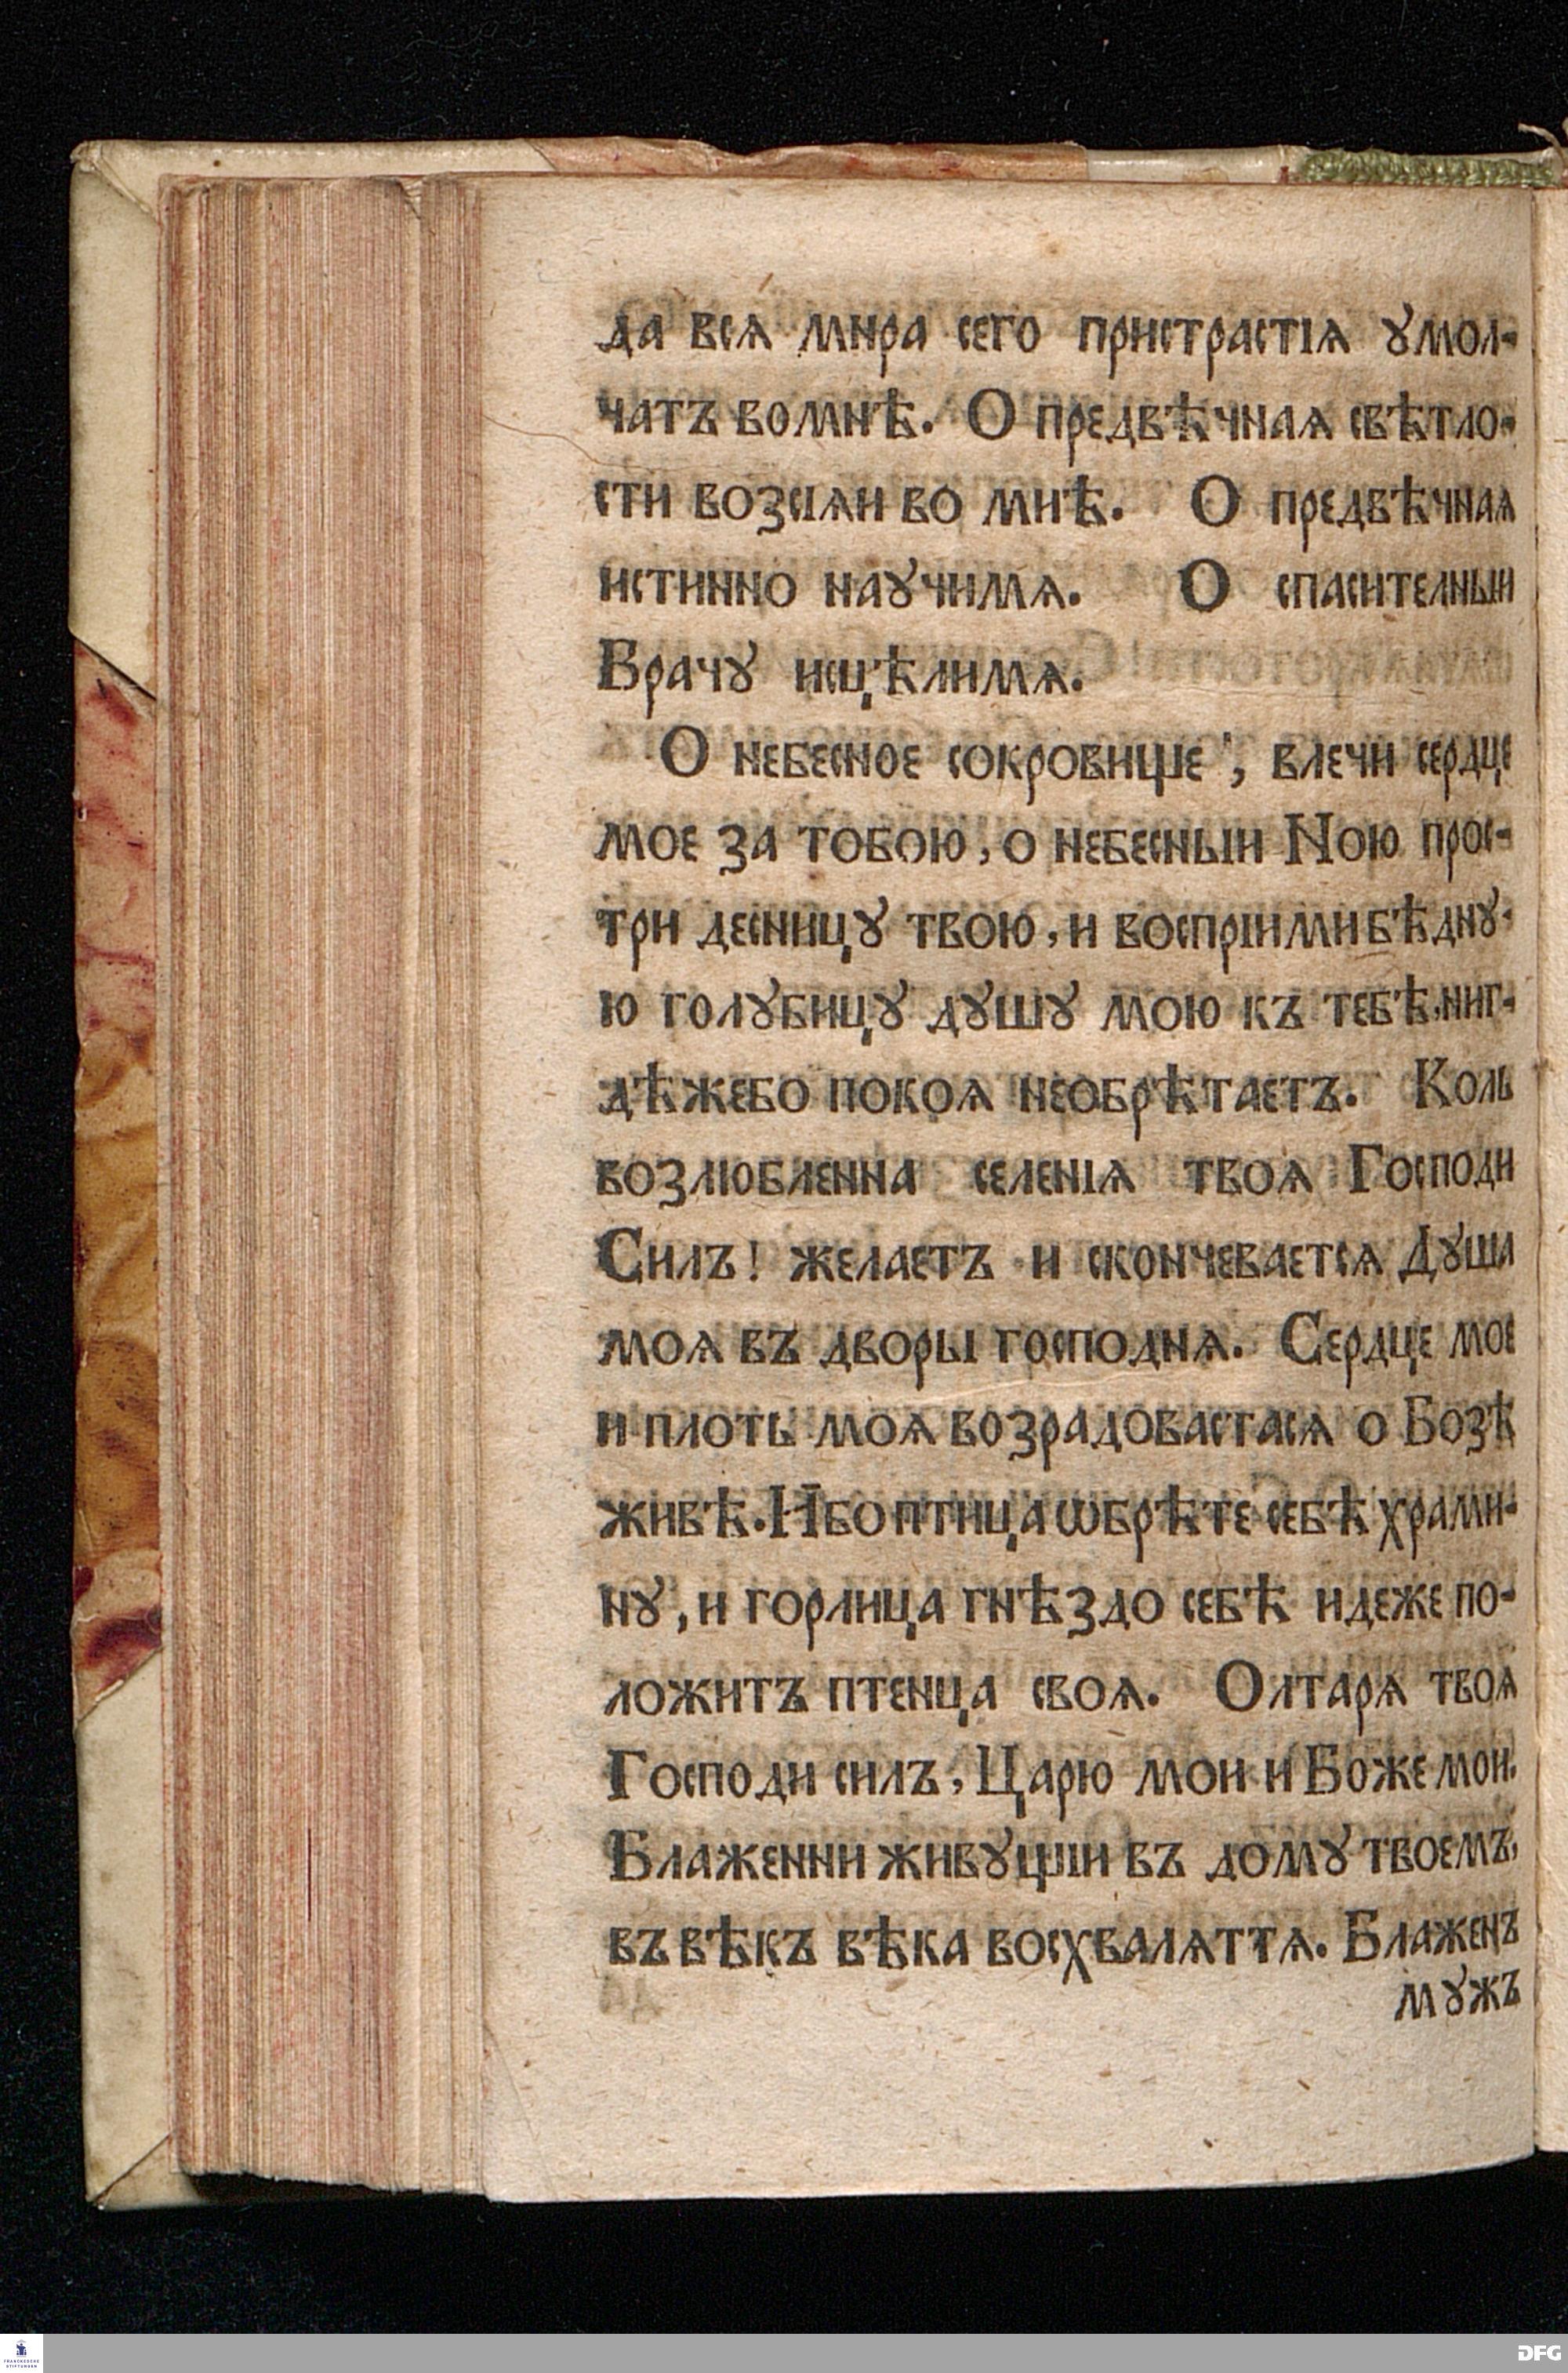 да всѧ мира сего пристрастїѧ ꙋмол-
чатъ во мнѣ. О предвѣчнаѧ свѣтло-
сти возсїѧи во мнѣ. О предвѣчнаѧ
истинно наꙋчимѧ. О спасителныи
Врачꙋ исцѣлимѧ.
О небесное сокровище, влечи сердце
мое за тобою, о небесныи Ною прос-
три десницꙋ твою, и воспрїими бѣднꙋ-
ю голꙋбицꙋ дꙋшꙋ мою къ тебѣ, ниг-
дѣжебо покоѧ необрѣтаетъ. Коль
возлюбленна селенїѧ твоѧ Господи
Силъ! желаетъ и скончеваетсѧ Дꙋша
моѧ въ дворы господнѧ. Сердце мое
и плоть моѧ возрадовастасѧ о Бозѣ
живѣ. Ибо птица ѡбрѣте себѣ храми-
нꙋ, и горлица гнѣздо себѣ идеже по-
ложитъ птенца своѧ. Олтарѧ твоѧ
Господи силъ, Царю мои и Боже мои.
Блаженни живꙋщїи въ домꙋ твоемъ,
въ вѣкъ вѣка восхвалѧттѧ. Блаженъ
мꙋжъ
FRANCKESCHE
STIFTUNGEN
DFG